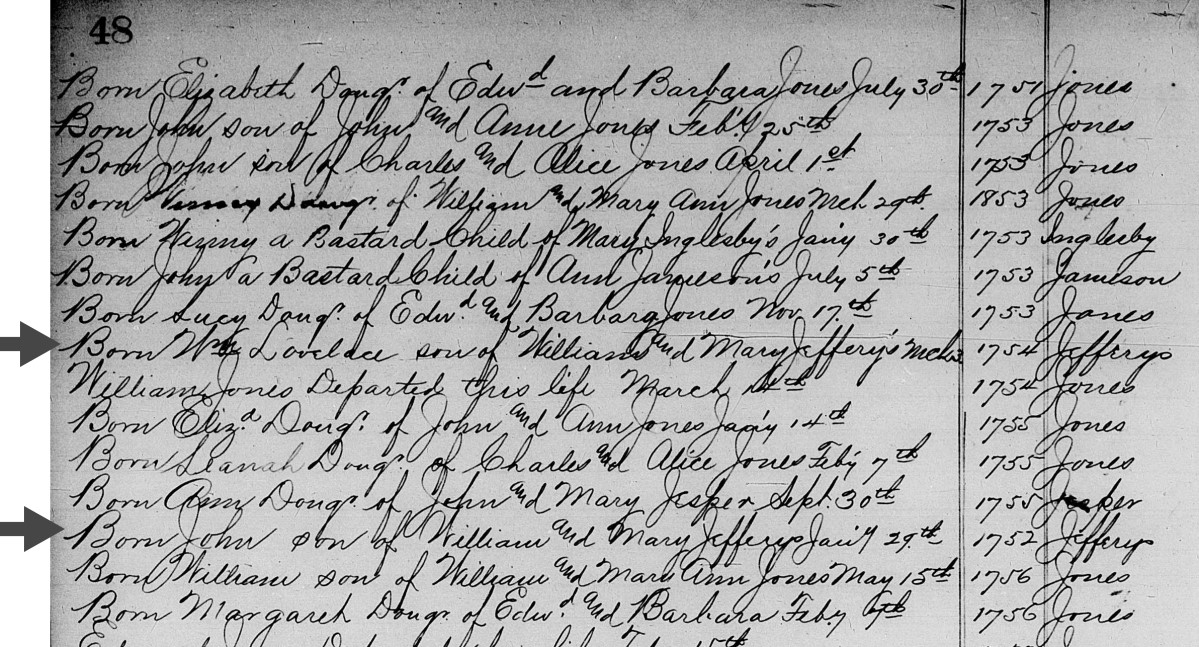 48
Born Elizabeth Daugr. of Edwd and Barbara Jones July 30th 1751 Jones
Born John son of John and Anne Jones Feby 25th 1753 Jones
Born John son of Charles and Alice Jones April 1st 1753 Jones
Born Daugr. of William and Mary Ann Jones Mch 29th. 1853 Jones
Born Winny a Bastard Child of Mary Inglesby's Jany 30th 1753 Inglesby
Born John a Bastard Child of Ann Jameson's July 5th 1753 Jameson
Born Lucy Daugr. of Edwd. and Barbara Jones Nov. 17th 1753 Jones
Born Wm Lovelace son of William and Mary Jeffery's Mch 1754 Jefferys
William Jones Departed this life March 14th 1754 Jones
Born Eliz.d Daugr. of John and Ann Jones Jany 14th 1755 Jones
Born Leanah Daugr. of Charles and Alice Jones Feby 7th 1755 Jones
Born Ann Daugr. of John and Mary Jesper Sept. 30th 1755
Born John son of William and Mary Jefferys Jany 29th 1752 Jefferys
Born William son of William and Mary Ann Jones May 15th 1756 Jones
Born Margaret Daugr. of Edwd. and Barbara Feby 1756 Jones